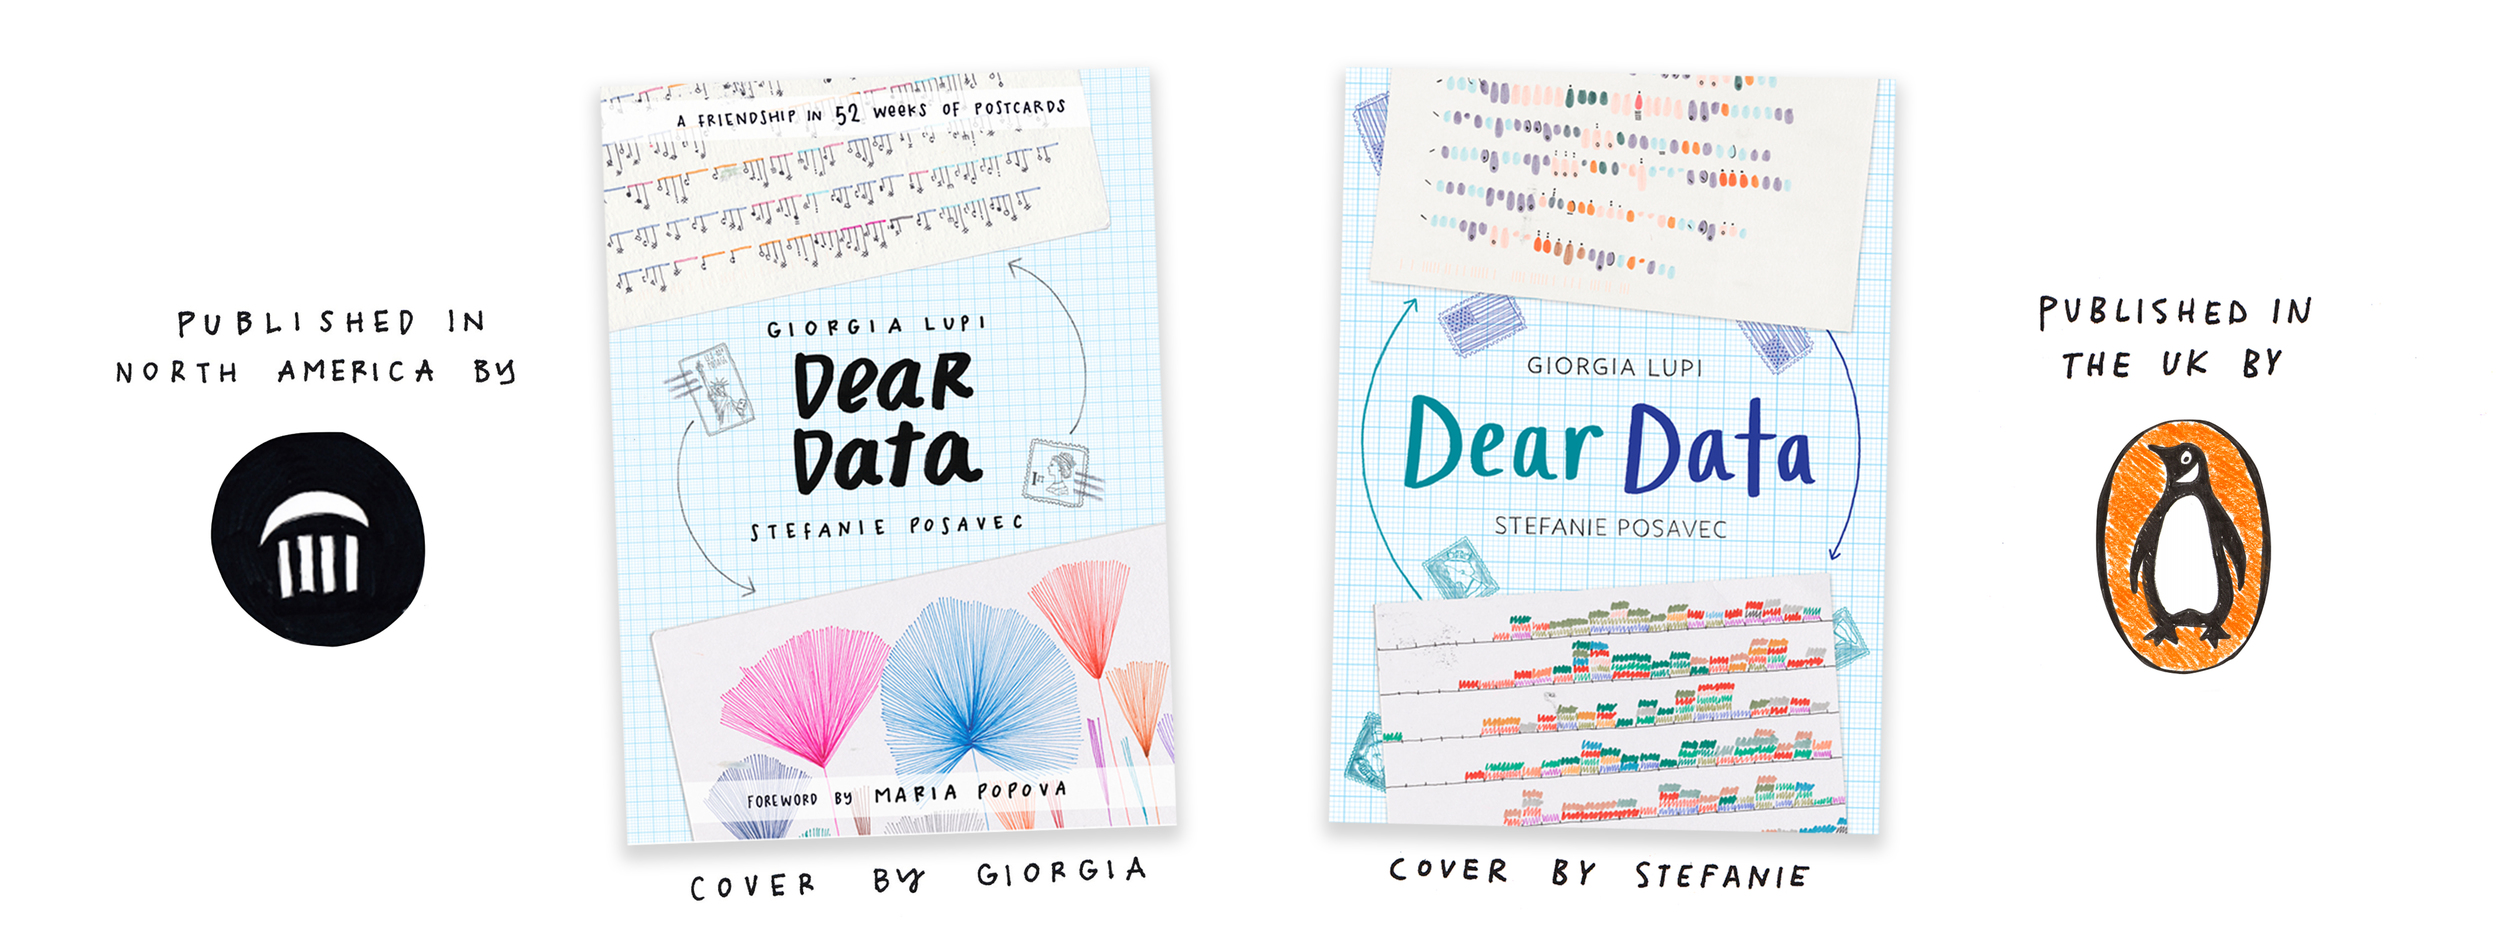 PUBLISHED IN
NORTH AMERICA BY
A FRIENDSHIP IN 52 WEEKS OF POSTCARDS
GIORGIA LUPI
DEAR
DATA
STEFANIE POSAVEC
FOREWORD BY MARIA POPOVA
COVER BY GIORGIA
GIORGIA LUPI
Dear Data
STEFANIE POSAVEC
COVER BY STEFANIE
PUBLISHED IN
THE UK BY